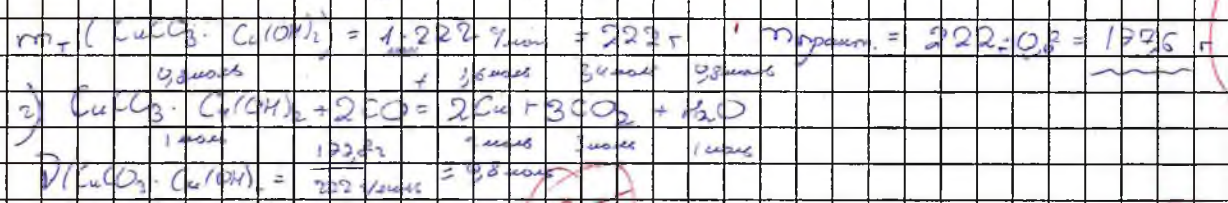 mт (CuCO₃·Cu(OH)₂) = 1·222 г/моль = 222 г   mпракт. = 222·0,8 = 177,6 г
0,8 моль   1,6 моль   2,4 моль   0,8 моль
2) CuCO₃·Cu(OH)₂ + 2CO = 2Cu + 3CO₂ + H₂O
1 моль   2 моль   3 моль   1 моль
ν(CuCO₃·Cu(OH)₂ = 177,6 г / 222 г/моль = 0,8 моль